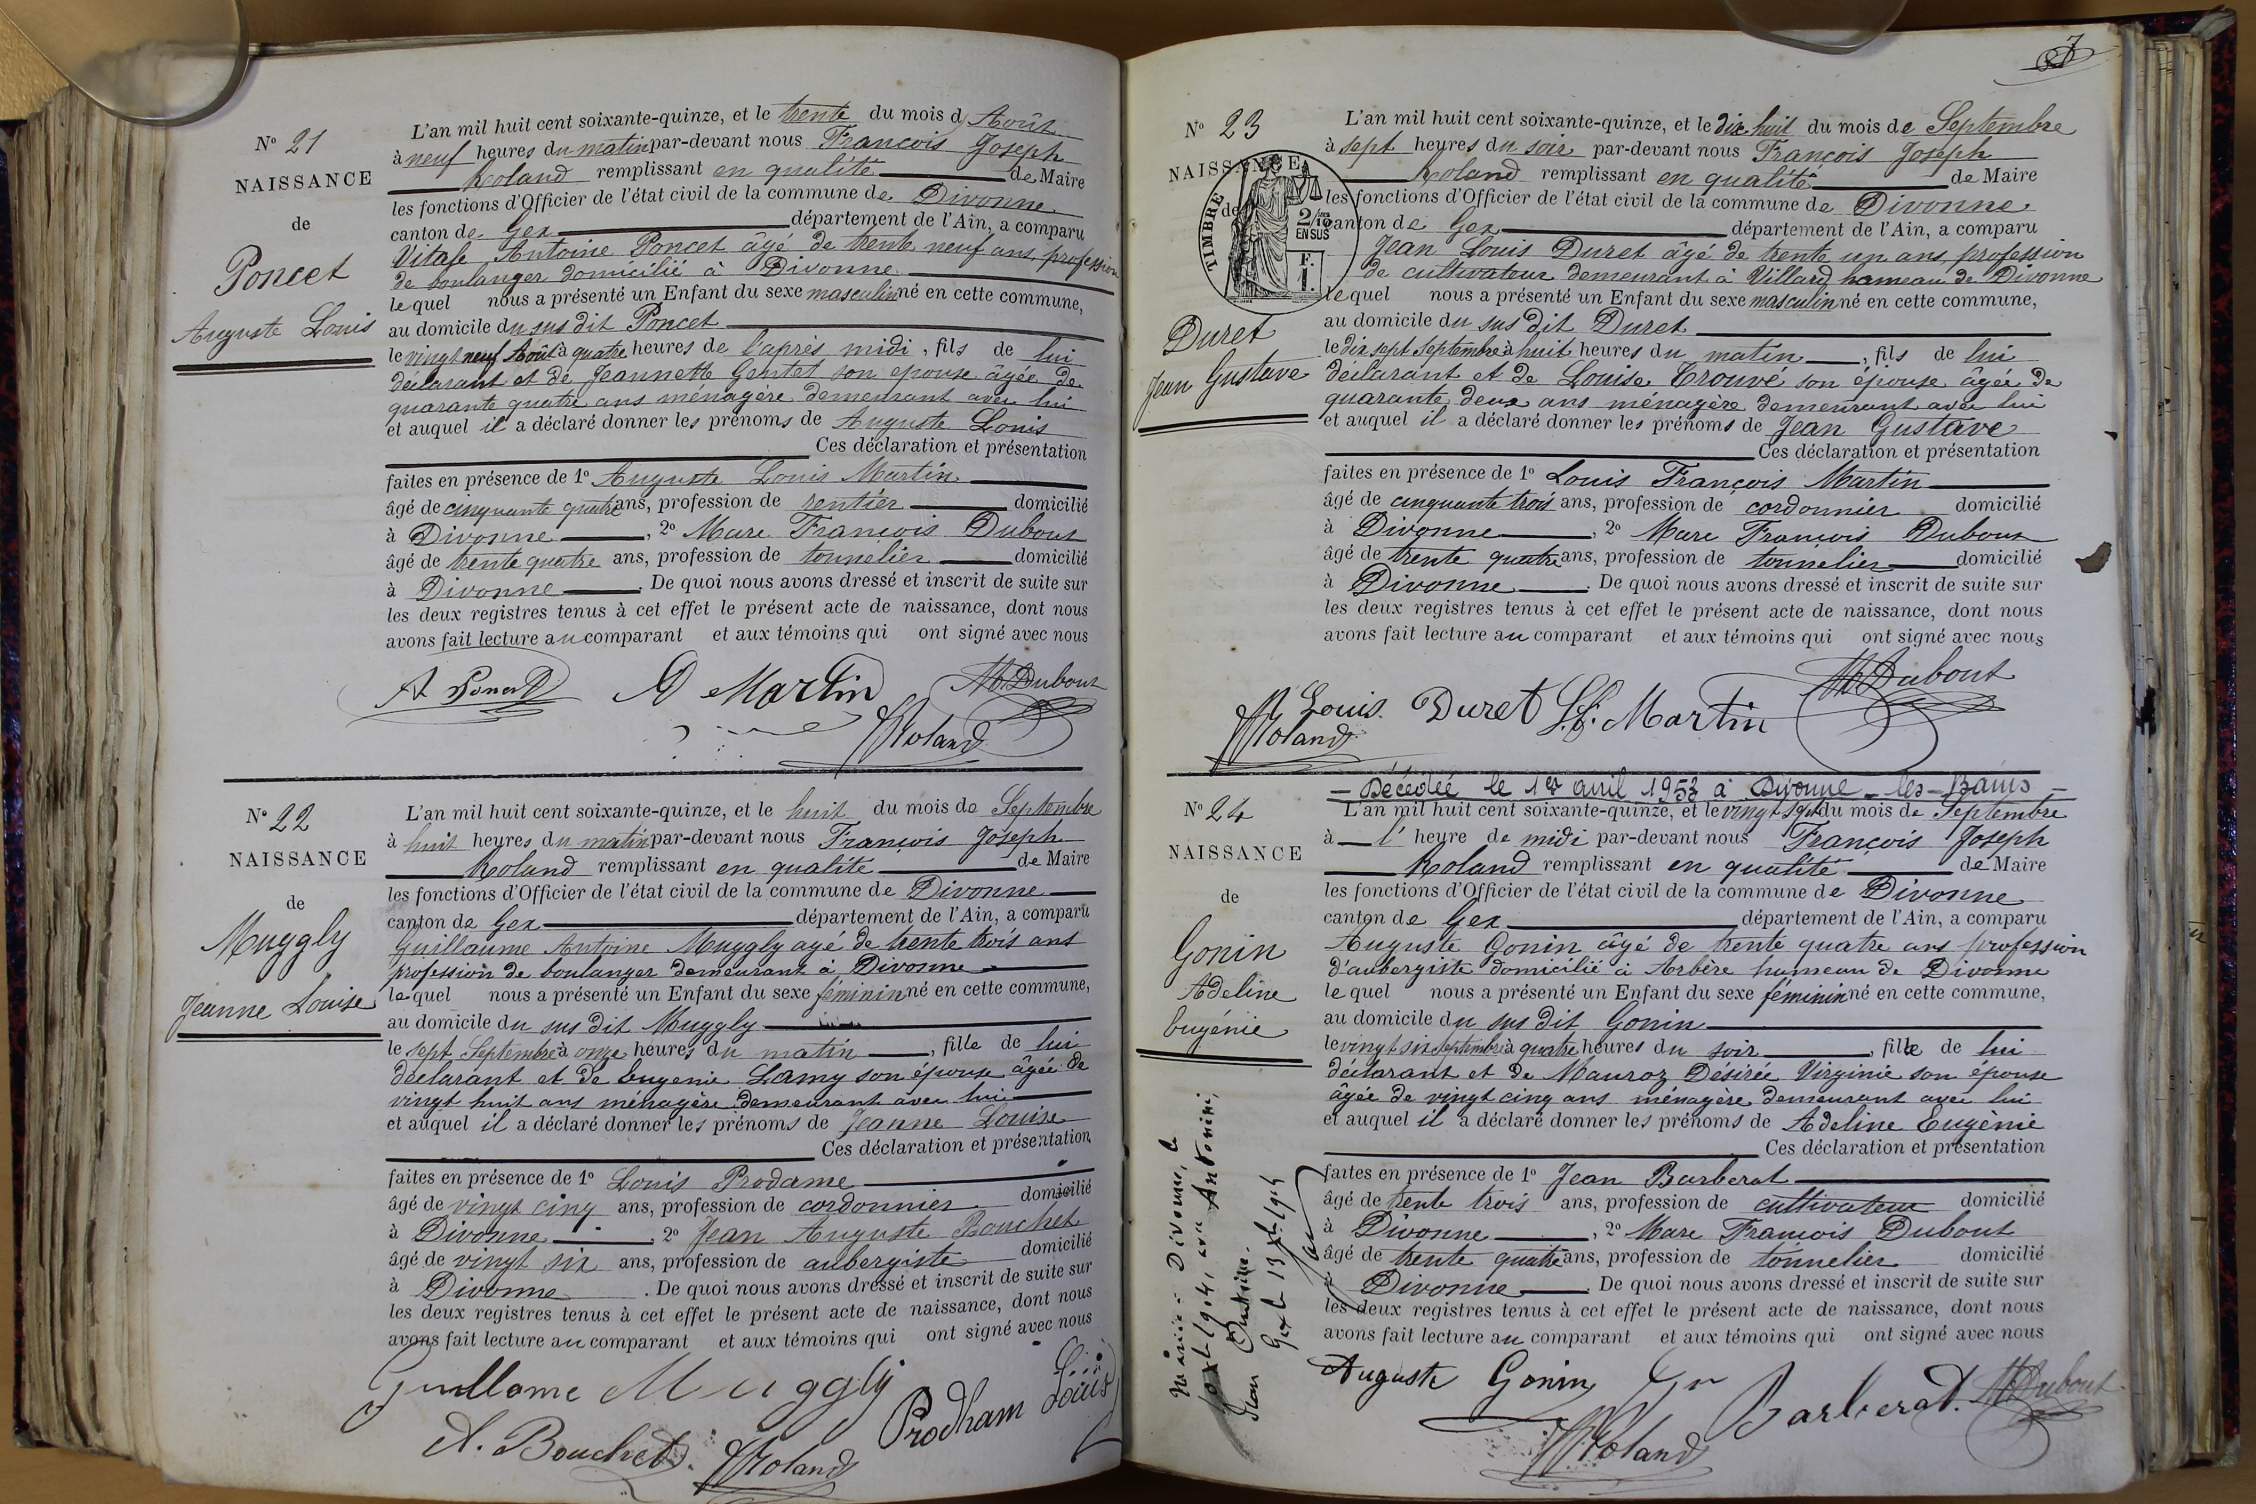 N° 21
NAISSANCE
de
Poncet
Auguste Louis
L'an mil huit cent soixante-quinze, et le trente du mois d Août
à neuf heures du matin par-devant nous François Joseph
Roland remplissant en qualité de Maire
les fonctions d'Officier de l'état civil de la commune de Divonne
canton de Gex département de l'Ain, a comparu
Antoine Poncet âgé de trente neuf ans, profession
de boulanger domicilié à Divonne
lequel nous a présenté un Enfant du sexe masculin né en cette commune,
au domicile du sus dit Poncet
le vingt neuf Août à quatre heures de l'après midi, fils de lui
déclarant et de Jeannette Gentet son épouse âgée de
quarante quatre ans ménagère demeurant avec lui
et auquel il a déclaré donner les prénoms de Auguste Louis
Ces déclaration et présentation
faites en présence de 1° Auguste Louis Martin
âgé de cinquante quatre ans, profession de rentier domicilié
à Divonne, 2° Marc François Dubout
âgé de trente quatre ans, profession de tonnelier domicilié
à Divonne. De quoi nous avons dressé et inscrit de suite sur
les deux registres tenus à cet effet le présent acte de naissance, dont nous
avons fait lecture au comparant et aux témoins qui ont signé avec nous
A Poncet Martin Dubout
Roland
N° 22
NAISSANCE
de
Muggly
Jeanne Louise
L'an mil huit cent soixante-quinze, et le huit du mois de Septembre
à huit heures du matin par-devant nous François Joseph
Roland remplissant en qualité de Maire
les fonctions d'Officier de l'état civil de la commune de Divonne
canton de Gex département de l'Ain, a comparu
Guillaume Antoine Muggly agé de trente trois ans
profession de boulanger demeurant à Divonne
lequel nous a présenté un Enfant du sexe féminin né en cette commune,
au domicile du sus dit Muggly
le sept Septembre à onze heures du matin, fille de lui
déclarant et de Eugenie Lamy son épouse âgée de
vingt huit ans ménagère demeurant avec lui
et auquel il a déclaré donner les prénoms de Jeanne Louise
Ces déclaration et présentation
faites en présence de 1° Louis Prodame
âgé de vingt cinq ans, profession de cordonnier domicilié
à Divonne, 2° Jean Auguste Bouchet
âgé de vingt six ans, profession de aubergiste domicilié
à Divonne. De quoi nous avons dressé et inscrit de suite sur
les deux registres tenus à cet effet le présent acte de naissance, dont nous
avons fait lecture au comparant et aux témoins qui ont signé avec nous
Guillame Muggly Prodham Louis
A. Bouchet Roland
7
N° 23
NAISSANCE
de
TIMBRE
2/10 EN SUS
F. 1.
Duret
Jean Gustave
L'an mil huit cent soixante-quinze, et le dix huit du mois de Septembre
à sept heures du soir par-devant nous François Joseph
Roland remplissant en qualité de Maire
les fonctions d'Officier de l'état civil de la commune de Divonne
canton de Gex département de l'Ain, a comparu
Jean Louis Duret âgé de trente un ans, profession
de cultivateur demeurant à Villard hameau de Divonne
lequel nous a présenté un Enfant du sexe masculin né en cette commune,
au domicile du sus dit Duret
le dix sept Septembre à huit heures du matin, fils de lui
déclarant et de Louise Crouvé son épouse âgée de
quarante deux ans ménagère demeurant avec lui
et auquel il a déclaré donner les prénoms de Jean Gustave
Ces déclaration et présentation
faites en présence de 1° Louis François Martin
âgé de cinquante trois ans, profession de cordonnier domicilié
à Divonne, 2° Marc François Dubout
âgé de trente quatre ans, profession de tonnelier domicilié
à Divonne. De quoi nous avons dressé et inscrit de suite sur
les deux registres tenus à cet effet le présent acte de naissance, dont nous
avons fait lecture au comparant et aux témoins qui ont signé avec nous
Louis Duret Martin Dubout
Roland
- Décédée le 1er avril 1953 à Divonne-les-Bains -
N° 24
NAISSANCE
de
Gonin
Adeline
Eugénie
L'an mil huit cent soixante-quinze, et le vingt sept du mois de Septembre
à l' heure de midi par-devant nous François Joseph
Roland remplissant en qualité de Maire
les fonctions d'Officier de l'état civil de la commune de Divonne
canton de Gex département de l'Ain, a comparu
Auguste Gonin âgé de trente quatre ans profession
d'aubergiste domicilié à Arbère hameau de Divonne
lequel nous a présenté un Enfant du sexe féminin né en cette commune,
au domicile du sus dit Gonin
le vingt six Septembre à quatre heures du soir, fille de lui
déclarant et de Mauroz Désirée Virginie son épouse
âgée de vingt cinq ans ménagère demeurant avec lui
et auquel il a déclaré donner les prénoms de Adeline Eugénie
Ces déclaration et présentation
faites en présence de 1° Jean Barberat
âgé de trente trois ans, profession de cultivateur domicilié
à Divonne, 2° Marc François Dubout
âgé de trente quatre ans, profession de tonnelier domicilié
à Divonne. De quoi nous avons dressé et inscrit de suite sur
les deux registres tenus à cet effet le présent acte de naissance, dont nous
avons fait lecture au comparant et aux témoins qui ont signé avec nous
Auguste Gonin Barberat. Dubout
Roland
Mariée à Divonne, le
10 Xbre 1914, avec Antonini,
Jean
Gex le 13 Xbre 1914